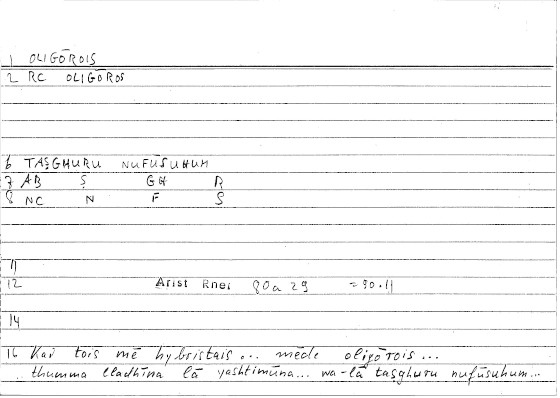 1 OLIGŌROIS
2 RC OLIGŌROS
6 TAṢGHURU NUFŪSUHUM
7 AB Ṣ GH R
8 NC N F S
11
12 Arist Rhet 80a 29 = 90.11
14
16 Kai tois mē hybristais... mēde oligōrois...
thumma lladhīna lā yashtimūna... wa-lā taṣghuru nufūsuhum...